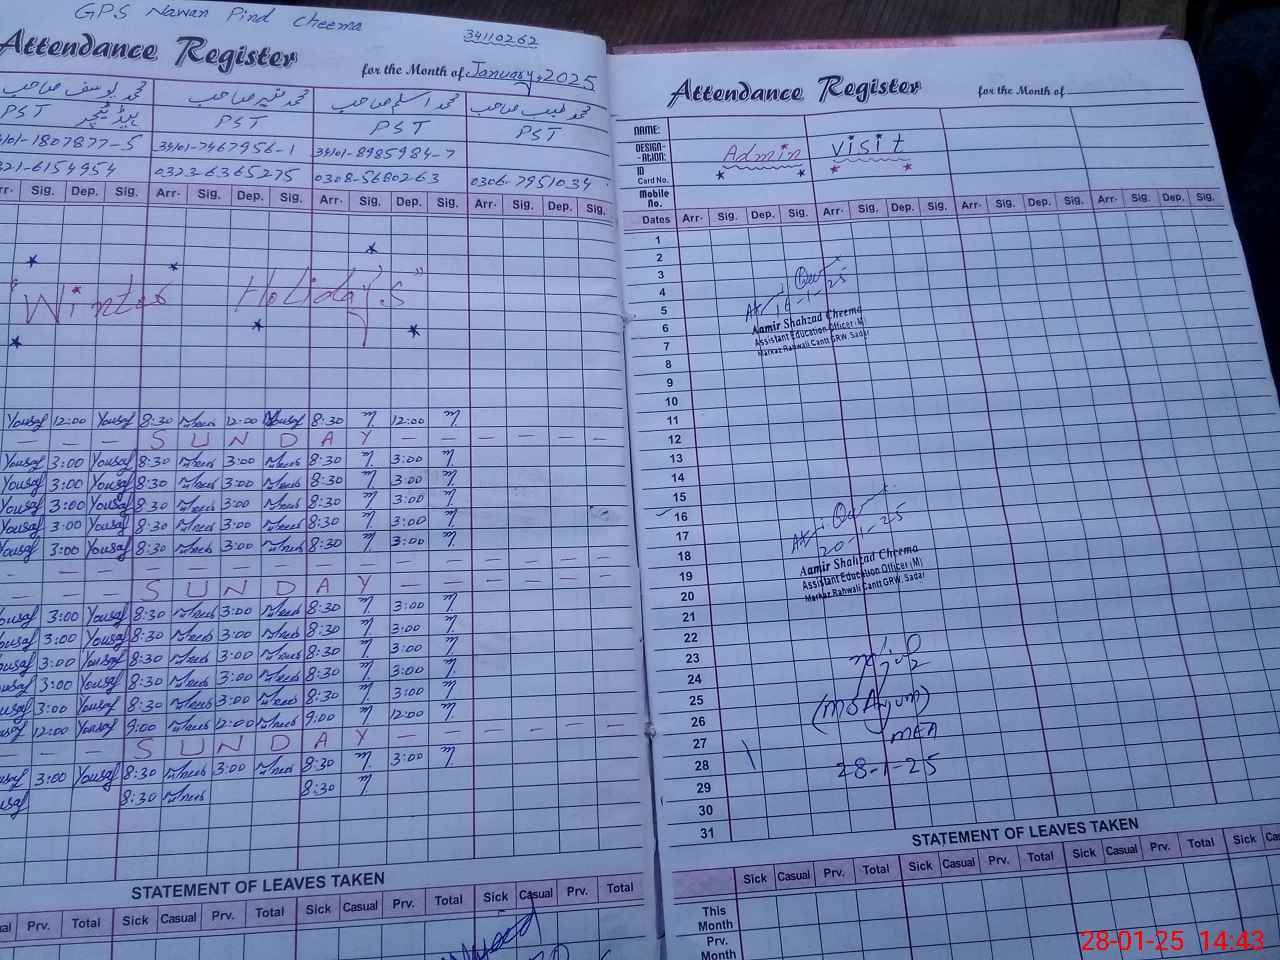 GPS Nawan Pind Cheema
34110262
Attendance Register for the Month of January, 2025
محمد یوسف صاحب محمد منیر صاحب محمد اسلم صاحب محمد طیب صاحب
PST ہیڈ ٹیچر PST PST PST
34101-1807877-5 34101-7467956-1 34101-8985984-7
0321-6154954 0323-6365275 0308-5680263 0306-7951034
Arr. Sig. Dep. Sig. Arr. Sig. Dep. Sig. Arr. Sig. Dep. Sig. Arr. Sig. Dep. Sig.
"Winter Holiday's"
Yousaf 12:00 Yousaf 8:30 12:00 Yousaf 8:30 m 12:00 m
— — — S U N D A Y — — — — — —
Yousaf 3:00 Yousaf 8:30 3:00 8:30 m 3:00 m
Yousaf 3:00 Yousaf 8:30 3:00 8:30 m 3:00 m
Yousaf 3:00 Yousaf 8:30 3:00 8:30 m 3:00 m
Yousaf 3:00 Yousaf 8:30 3:00 8:30 m 3:00 m
Yousaf 3:00 Yousaf 8:30 3:00 8:30 m 3:00 m
— — — S U N D A Y — — — — — —
Yousaf 3:00 Yousaf 8:30 3:00 8:30 m 3:00 m
Yousaf 3:00 Yousaf 8:30 3:00 8:30 m 3:00 m
Yousaf 3:00 Yousaf 8:30 3:00 8:30 m 3:00 m
Yousaf 3:00 Yousaf 8:30 3:00 8:30 m 3:00 m
Yousaf 3:00 Yousaf 8:30 3:00 8:30 m 3:00 m
Yousaf 12:00 Yousaf 9:00 12:00 9:00 m 12:00 m
— — — S U N D A Y — — — — — —
Yousaf 3:00 Yousaf 8:30 3:00 8:30 m 3:00 m
Yousaf 8:30 8:30 m
STATEMENT OF LEAVES TAKEN
Casual Prv. Total Sick Casual Prv. Total Sick Casual Prv. Total Sick Casual Prv. Total
Attendance Register for the Month of
NAME:
DESIGN-ATION: Admin visit
ID Card No.
Mobile No.
Dates Arr. Sig. Dep. Sig. Arr. Sig. Dep. Sig. Arr. Sig. Dep. Sig. Arr. Sig. Dep. Sig.
1
2
3
4
5
6
7
8
9
10
11
12
13
14
15
16
17
18
19
20
21
22
23
24
25
26
27
28
29
30
31
Aamir Shahzad Cheema
Assistant Education Officer (M)
Markaz Rahwali Cantt GRW. Sadar
20-1-25
Aamir Shahzad Cheema
Assistant Education Officer (M)
Markaz Rahwali Cantt GRW. Sadar
MEA
28-1-25
STATEMENT OF LEAVES TAKEN
Sick Casual Prv. Total Sick Casual Prv. Total Sick Casual Prv. Total Sick
This Month
Prv. Month
28-01-25 14:43